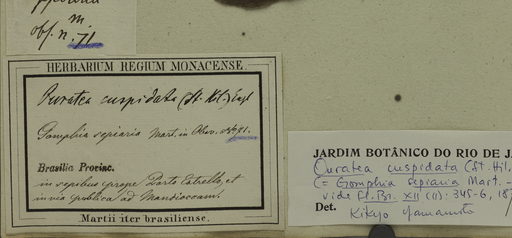 m.
off. n. 71
HERBARIUM REGIUM MONACENSE.
Ouratea cuspidata (St. Hil.) Engl
Gomphia sepiaria Mart. in Obs. No 71.
Brasilia Provinc.
in sepibus prope Porto Estrello, et
in via publica ad Mandioccam.
Martii iter brasiliense.
JARDIM BOTÂNICO DO RIO DE JA
Ouratea cuspidata (St. Hil.
(= Gomphia sepiaria Mart. -
vide Fl. Br. XII (II): 345-6, 18
Det. Kikyo Yamamoto